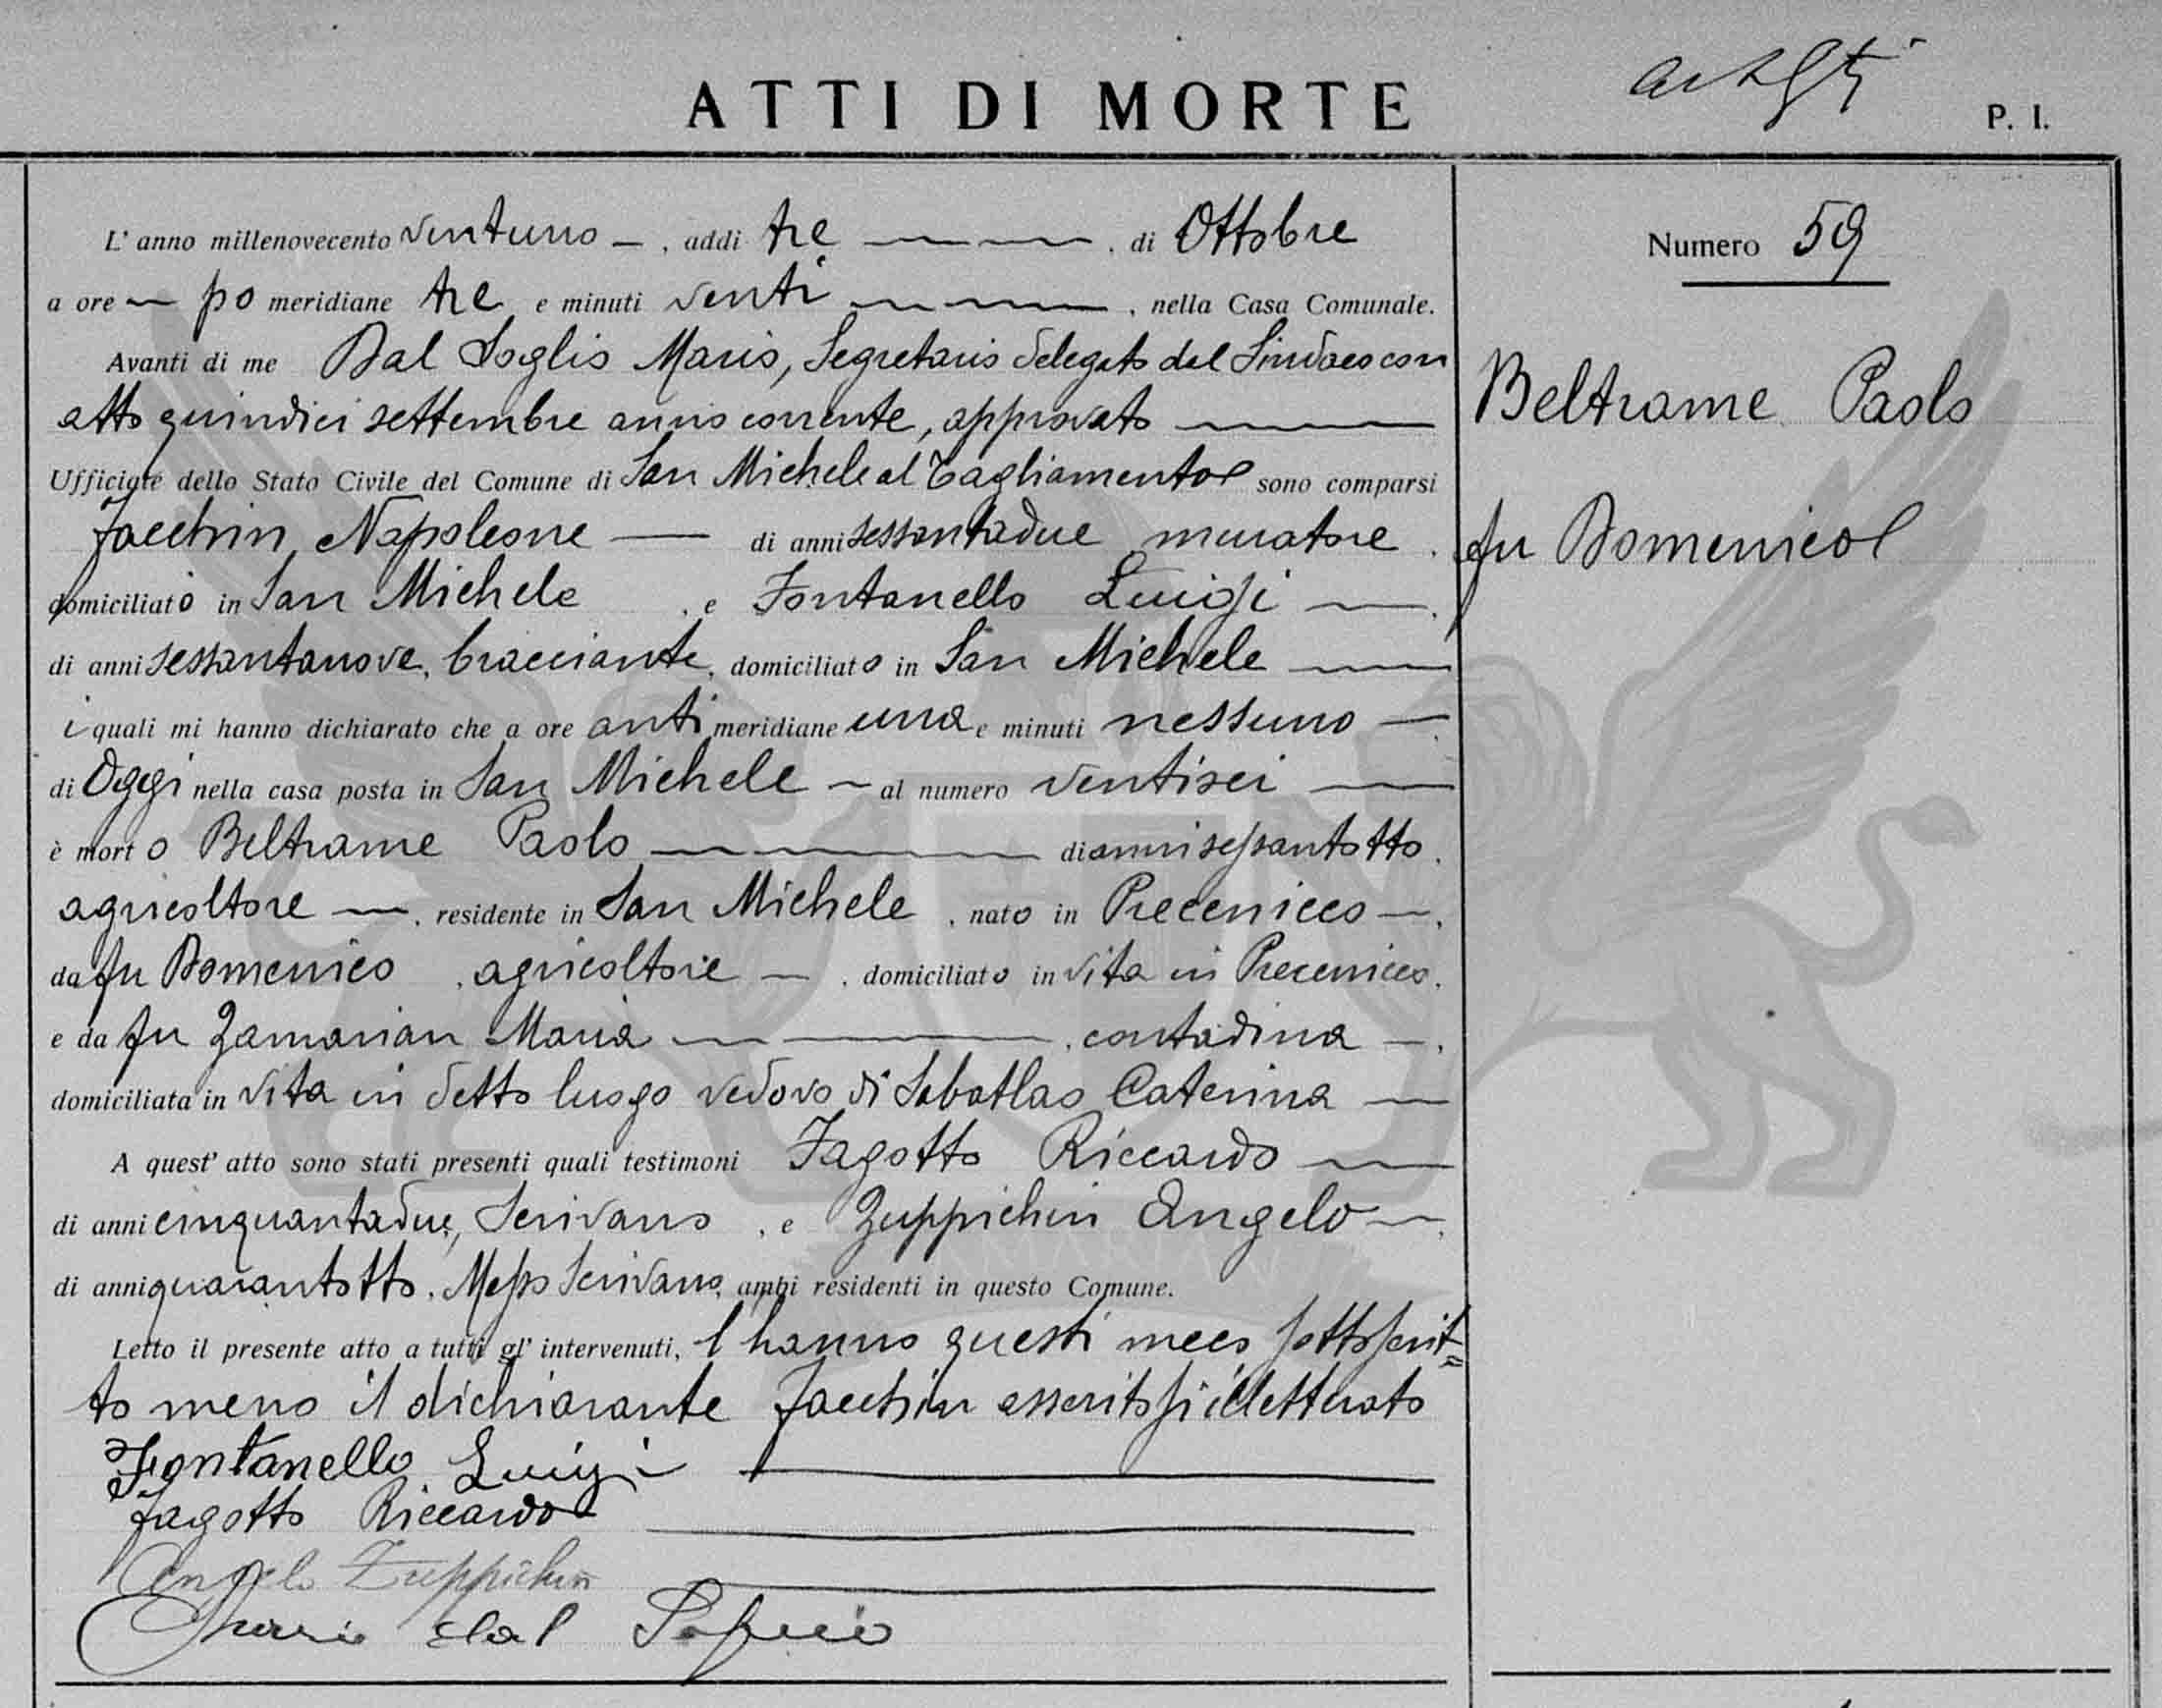 ATTI DI MORTE
P. I.
L' anno millenovecento ventuno, addi tre, di Ottobre
a ore po meridiane tre e minuti venti, nella Casa Comunale.
Avanti di me Dal Soglio Mario, Segretario delegato dal Sindaco con
atto quindici settembre anno corrente, approvato
Ufficiale dello Stato Civile del Comune di San Michele al Tagliamento sono comparsi
Jacchin Napoleone di anni sessantadue muratore,
domiciliato in San Michele, e Fontanello Luigi,
di anni sessantanove, bracciante, domiciliato in San Michele
i quali mi hanno dichiarato che a ore anti meridiane una e minuti nessuno
di Oggi nella casa posta in San Michele al numero ventisei
è morto Beltrame Paolo di anni sessantotto,
agricoltore, residente in San Michele, nato in Precenicco,
da fu Domenico, agricoltore, domiciliato in vita in Precenicco,
e da fu Zamarian Maria, contadina,
domiciliata in vita in detto luogo vedovo di Caterina
A quest' atto sono stati presenti quali testimoni Fagotto Riccardo
di anni cinquantadue, Scrivano, e Zuppichin Angelo,
di anni quarantotto, Messo Scrivano, ambi residenti in questo Comune.
Letto il presente atto a tutti gl' intervenuti, l hanno questi meco sottoscrit=
to meno il dichiarante Jacchin asseritosi illetterato
Fontanello Luigi
Fagotto Riccardo
Angelo Zuppichin
Mario dal Soglio
Numero 59
Beltrame Paolo
fu Domenico